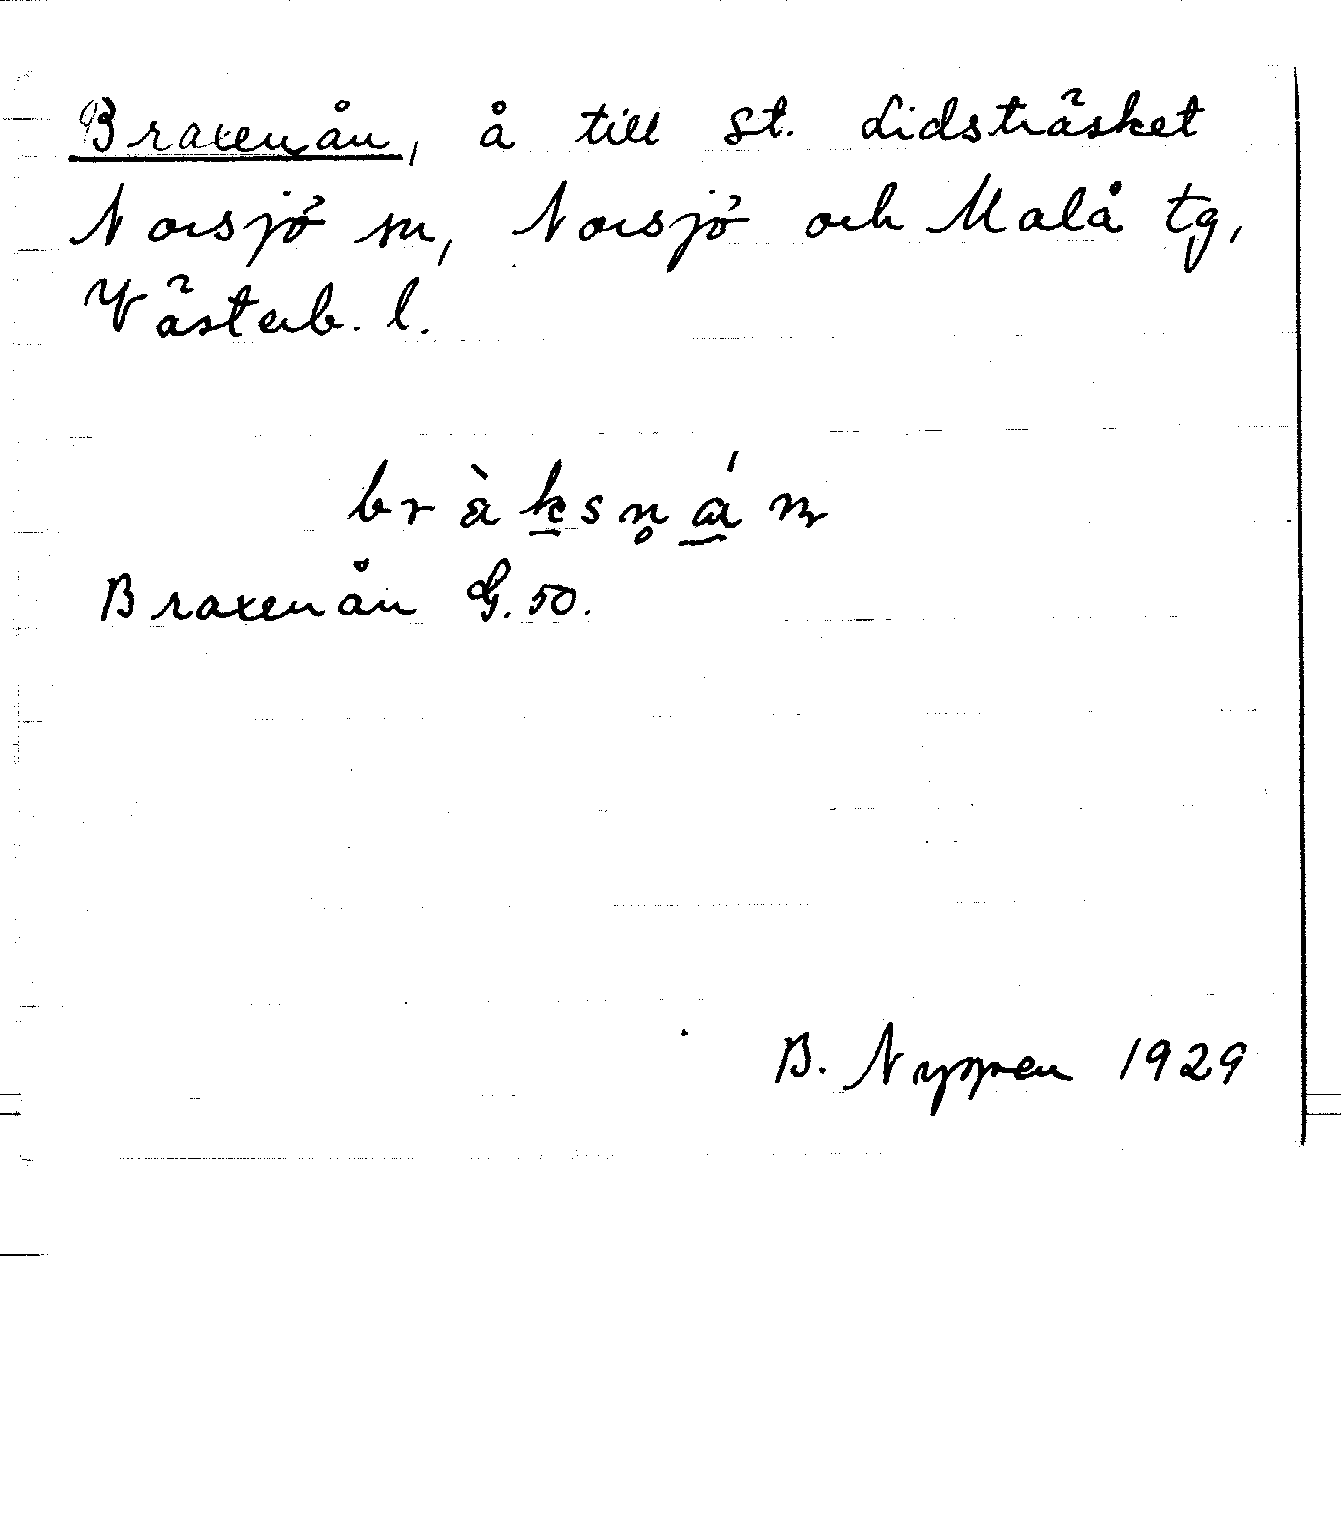 Braxenån, å till St. Lidsträsket
Norsjö sn, Norsjö och Malå tg,
Västerb. l.
bràksn̥án
Braxenån G. 50.
B. Nyppen 1929